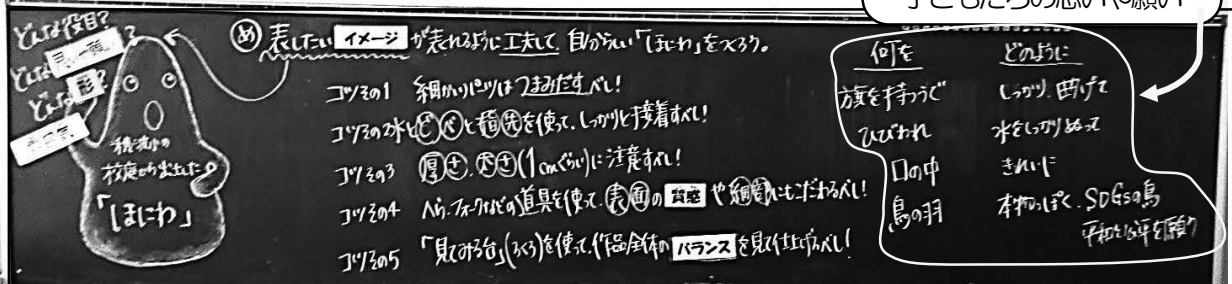 子どもたちの思いや願い
どんな役目?
どんな
どんな
め 表したいイメージが表れるように工夫して、自分らしい「ほにわ」をつくろう。
コツその1 細かいパーツはつまみだすべし!
コツその2 水とどべと指先を使って、しっかりと接着すべし!
コツその3 厚さ、太さ(1cmぐらい)に注意すべし!
コツその4 へら、フォークなどの道具を使って、表面の質感や細部にもこだわるべし!
コツその5 「見てみる台」(ろくろ)を使って、作品全体のバランスを見て仕上げるべし!
校庭から出土した
「ほにわ」
何を どのように
旗を持つうで しっかり、曲げて
ひびわれ 水をしっかりぬって
口の中 きれいに
鳥の羽 本物っぽく、SDGsの鳥
平和を願う